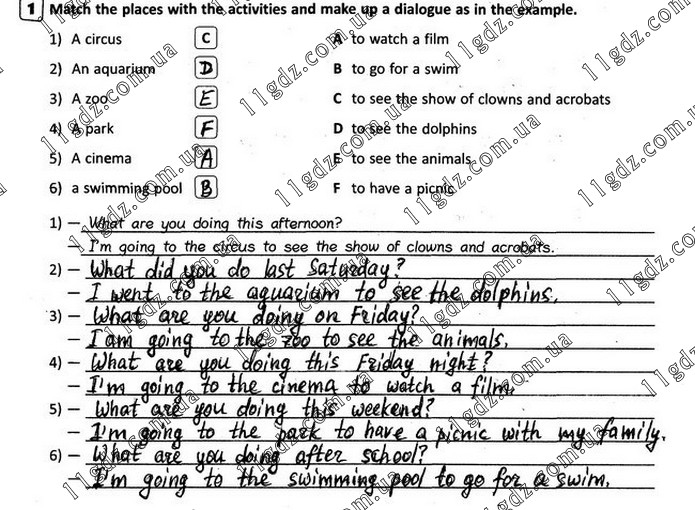 1 Match the places with the activities and make up a dialogue as in the example.
1) A circus C A to watch a film
2) An aquarium D B to go for a swim
3) A zoo E C to see the show of clowns and acrobats
4) A park F D to see the dolphins
5) A cinema A E to see the animals
6) a swimming pool B F to have a picnic
1) – What are you doing this afternoon?
– I'm going to the circus to see the show of clowns and acrobats.
2) – What did you do last Saturday?
– I went to the aquarium to see the dolphins.
3) – What are you doing on Friday?
– I am going to the zoo to see the animals.
4) – What are you doing this Friday night?
– I'm going to the cinema to watch a film.
5) – What are you doing this weekend?
– I'm going to the park to have a picnic with my family.
6) – What are you doing after school?
I'm going to the swimming pool to go for a swim.
11gdz.com.ua